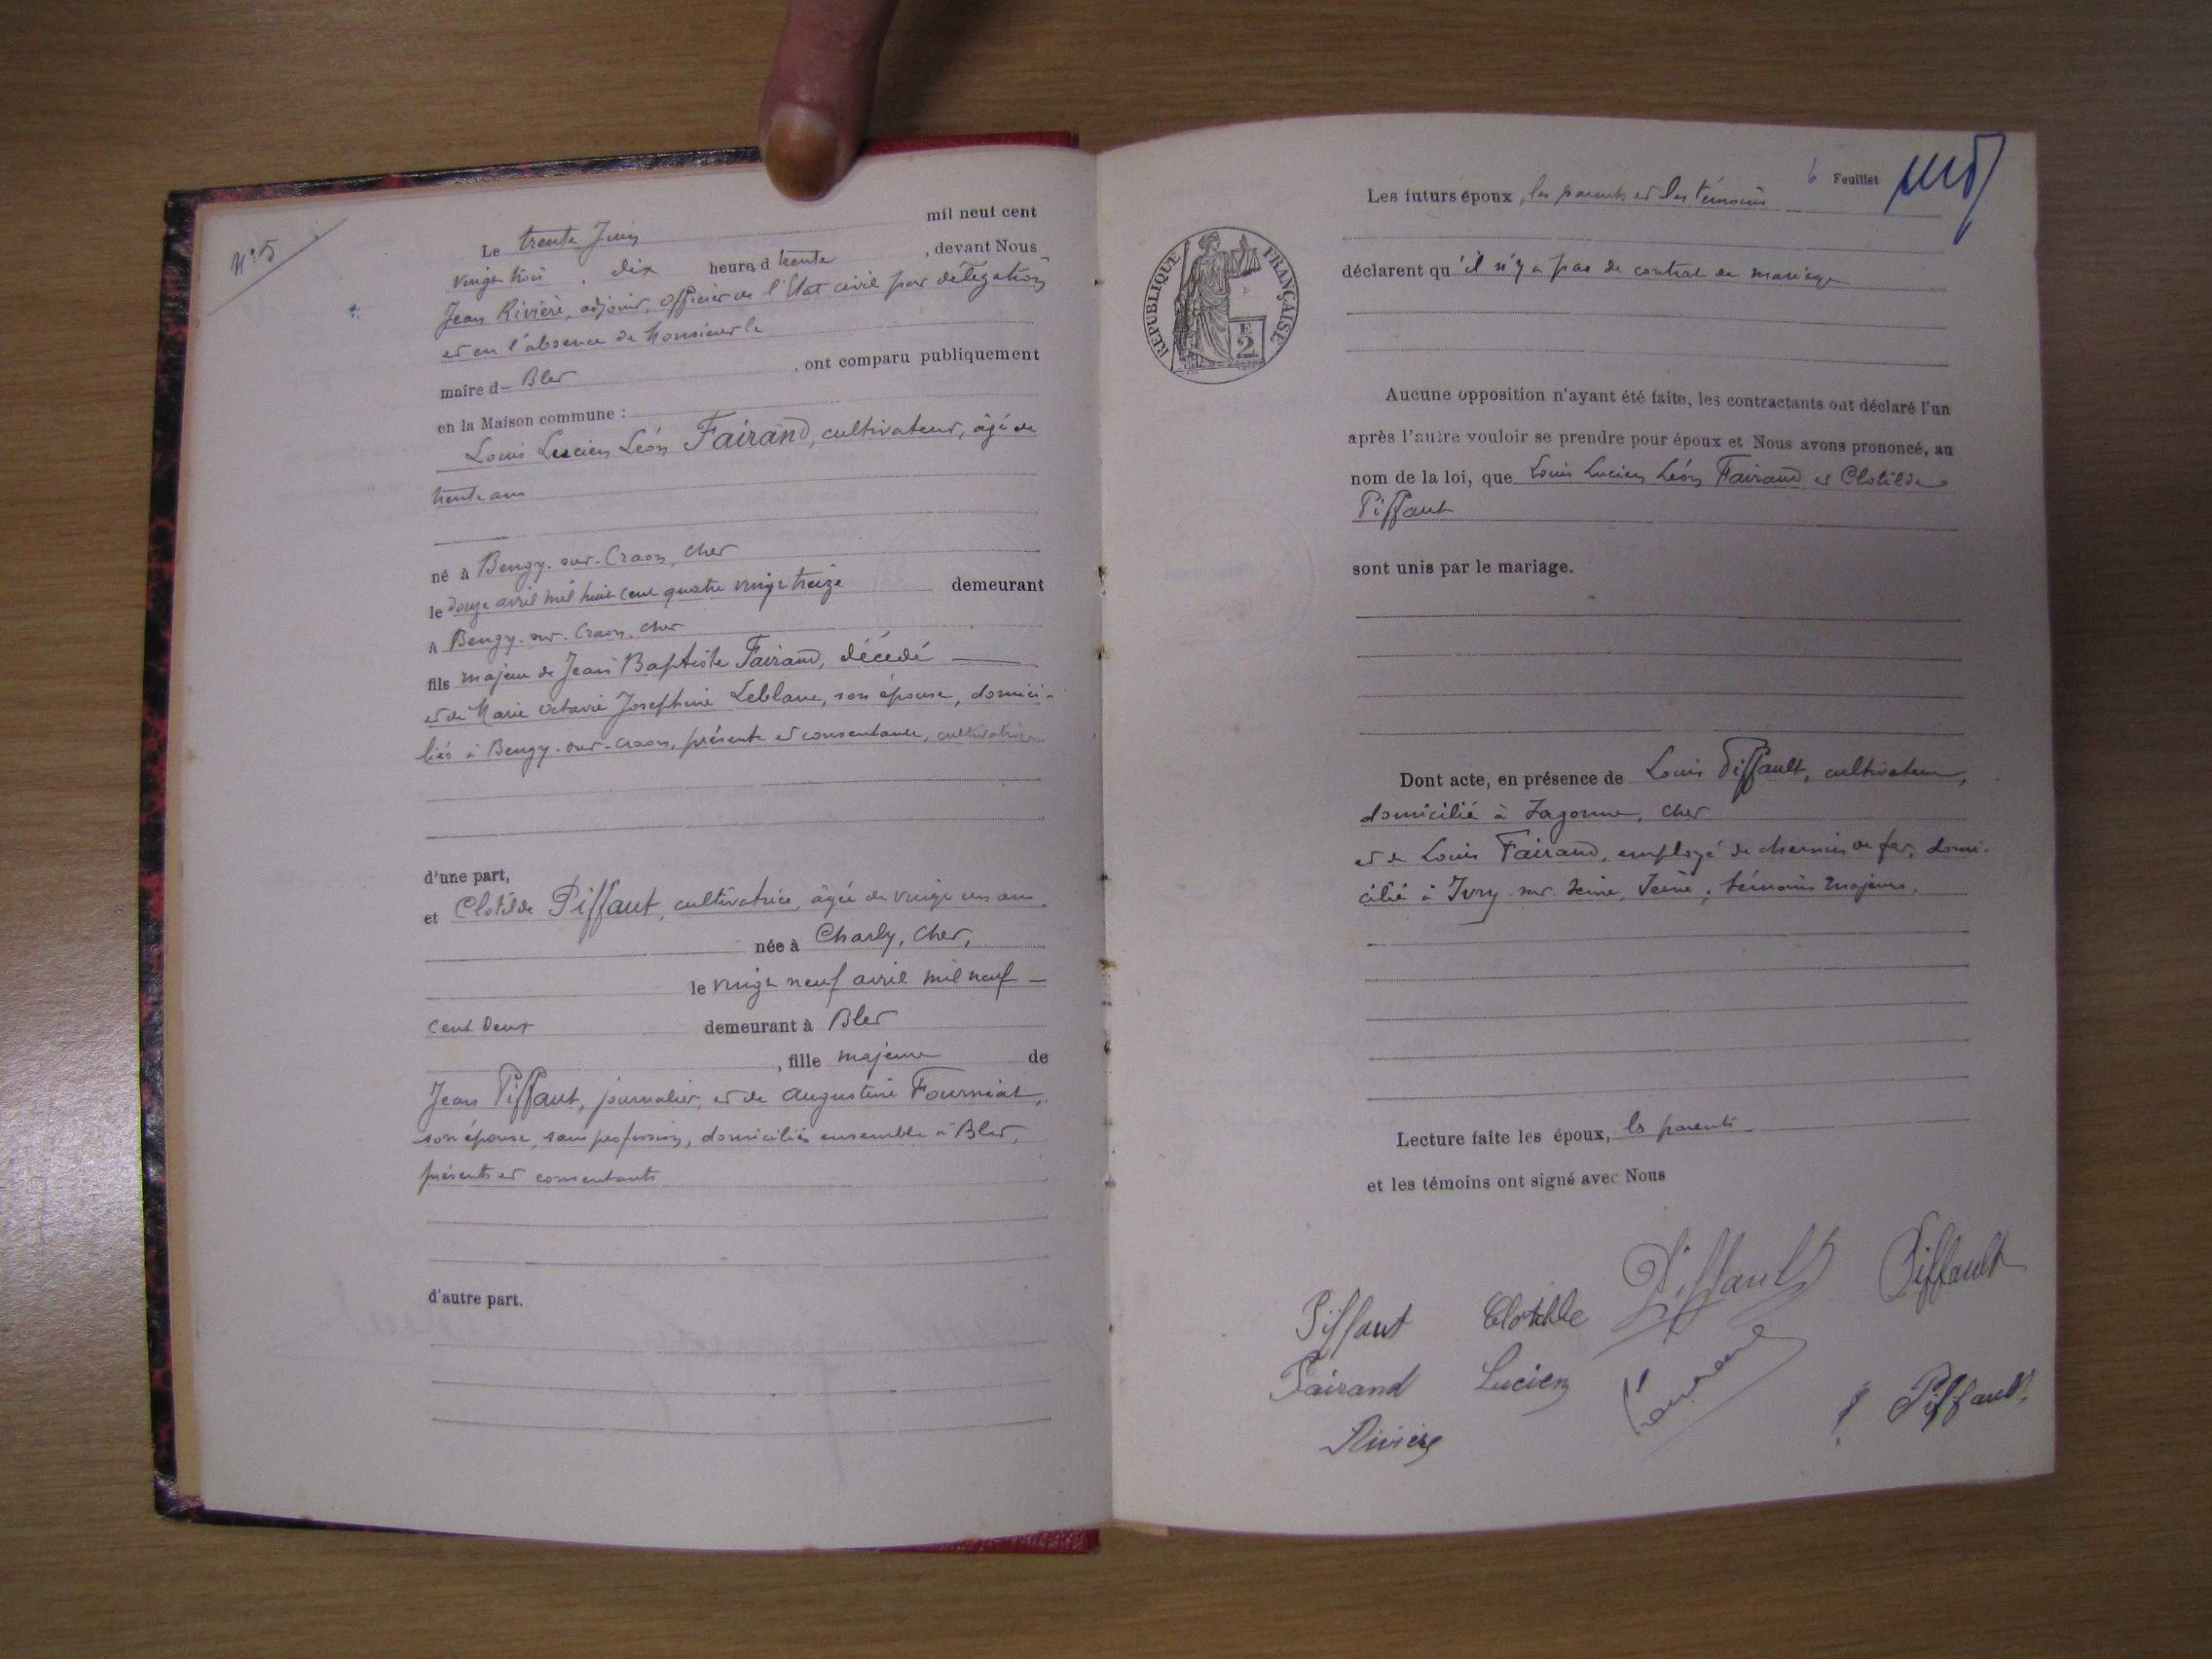 N° 5
Le trente Juin mil neuf cent
vingt trois, dix heures trente, devant Nous
Jean Rivière, adjoint, officier de l'Etat civil par délégation
et en l'absence de Monsieur le
maire d- Blet, ont comparu publiquement
en la Maison commune :
Louis Lucien Léon Fairand, cultivateur, âgé de
trente ans
né à Bengy-sur-Craon, Cher
le douze avril mil huit cent quatre vingt treize demeurant
à Bengy-sur-Craon, Cher
fils majeur de Jean Baptiste Fairand, décédé
et de Marie Octavie Joséphine Leblanc, son épouse, domici-
liés à Bengy-sur-Craon, présente et consentante, cultivatrice
d'une part,
et Clotilde Piffaut, cultivatrice, âgée de vingt un ans,
née à Charly, Cher,
le vingt neuf avril mil neuf
cent deux demeurant à Blet
, fille majeure de
Jean Piffaut, journalier, et de Augustine Fourniat,
son épouse, sans profession, domiciliés ensemble à Blet,
présents et consentants
d'autre part.
6 Feuillet
Les futurs époux, les parents et les témoins
RÉPUBLIQUE FRANÇAISE
E
2
déclarent qu'il n'y a pas de contrat de mariage
Aucune opposition n'ayant été faite, les contractants ont déclaré l'un
après l'autre vouloir se prendre pour époux et Nous avons prononcé, au
nom de la loi, que Louis Lucien Léon Fairand et Clotilde
Piffaut
sont unis par le mariage.
Dont acte, en présence de Louis Piffault, cultivateur,
domicilié à Jagonne, Cher
et de Louis Fairand, employé de chemin de fer, domi-
cilié à Ivry sur Seine, Seine, témoins majeurs.
Lecture faite les époux, les parents
et les témoins ont signé avec Nous
Piffaut Clotilde Piffault Piffault
Fairand Lucien Piffault
Rivière